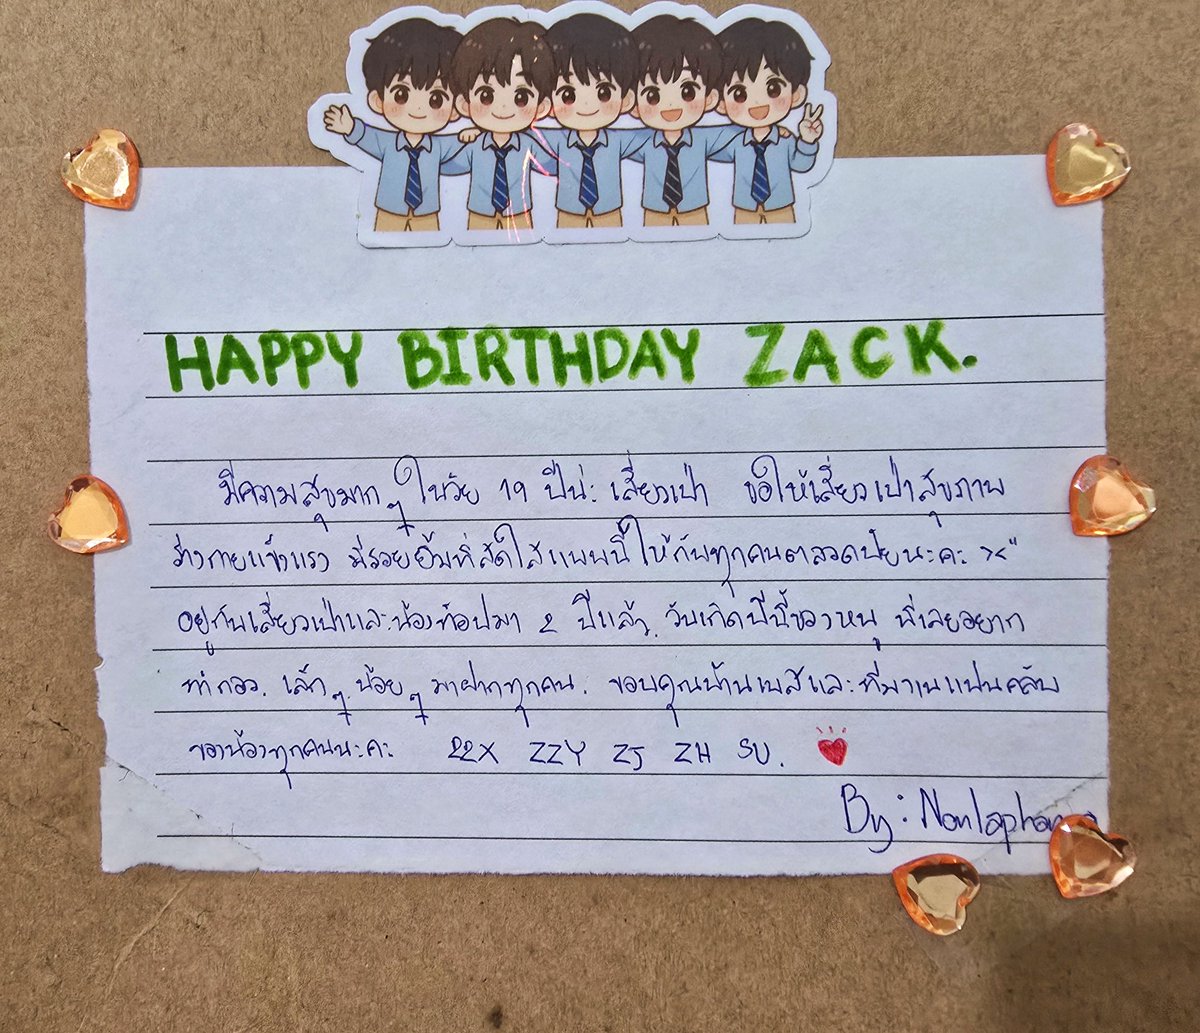 HAPPY BIRTHDAY ZACK.
มีความสุขมาก ๆ ในวัย 19 ปีน่ะ เสี่ยวเป่า ขอให้เสี่ยวเป่าสุขภาพ
ร่างกายแข็งแรง มีรอยยิ้มที่สดใสแบบนี้ให้กับทุกคนตลอดไปนะคะ ><"
อยู่กับเสี่ยวเป่าและน้องท้อปมา 2 ปีแล้ว. วันเกิดปีนี้ของหนู พี่เลยอยาก
ทำกอว. เล็ก ๆ น้อย ๆ มาฝากทุกคน. ขอบคุณบ้านเบสและที่มาเป็นแฟนคลับ
ของน้องทุกคนนะคะ ZZX ZZY ZJ ZH SU.
By: Nonlaphan